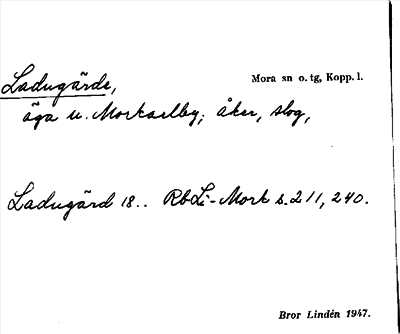 Ladugärde, Mora sn o. tg, Kopp. l.
äga u. Morkarlby; åker, slog,
Ladugärd 18.. RbLi-Mork s. 211, 240.
Bror Lindén 1947.